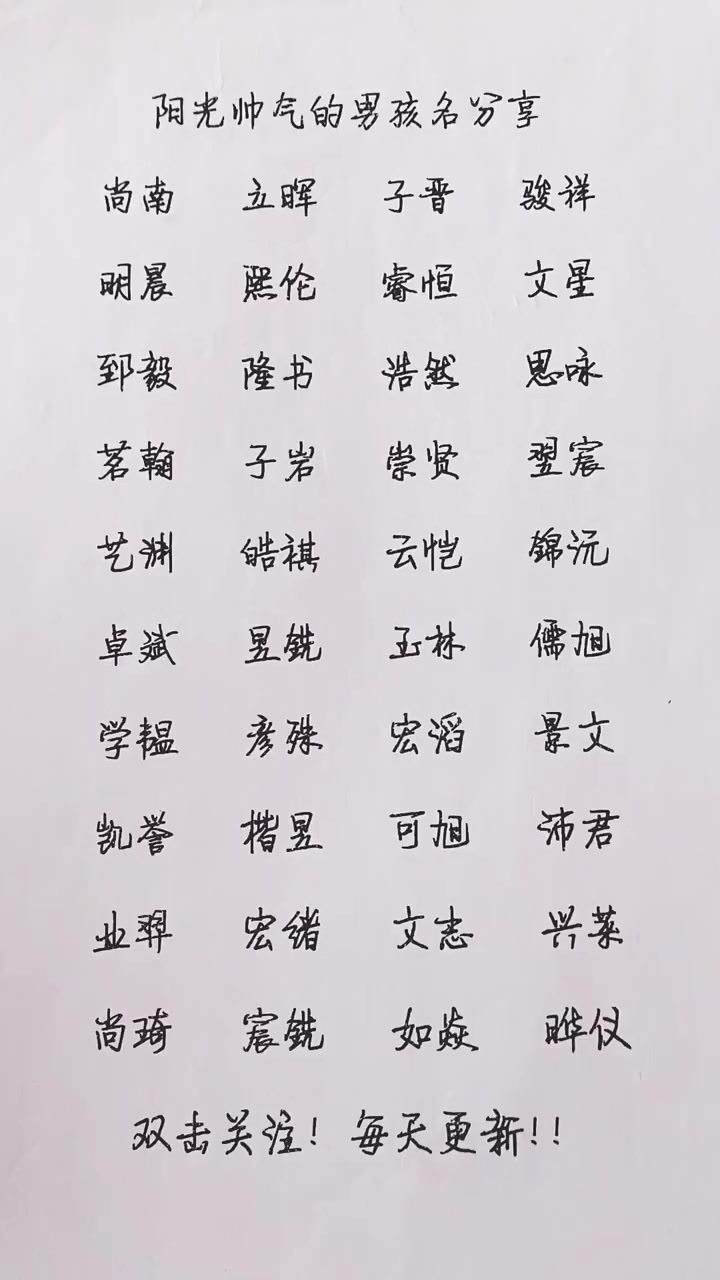 阳光帅气的男孩名分享
尚南 立晖 子晋 骏祥
明晨 熙伦 睿恒 文星
郅毅 隆书 浩然 思咏
茗翰 子岩 崇贤 翌宸
艺渊 皓祺 云恺 锦沅
卓斌 昱铣 玉林 儒旭
学韫 彦殊 宏滔 景文
凯誉 楷昱 可旭 沛君
业羿 宏绪 文志 兴莱
尚琦 宸铣 如焱 晔仪
双击关注！每天更新！！